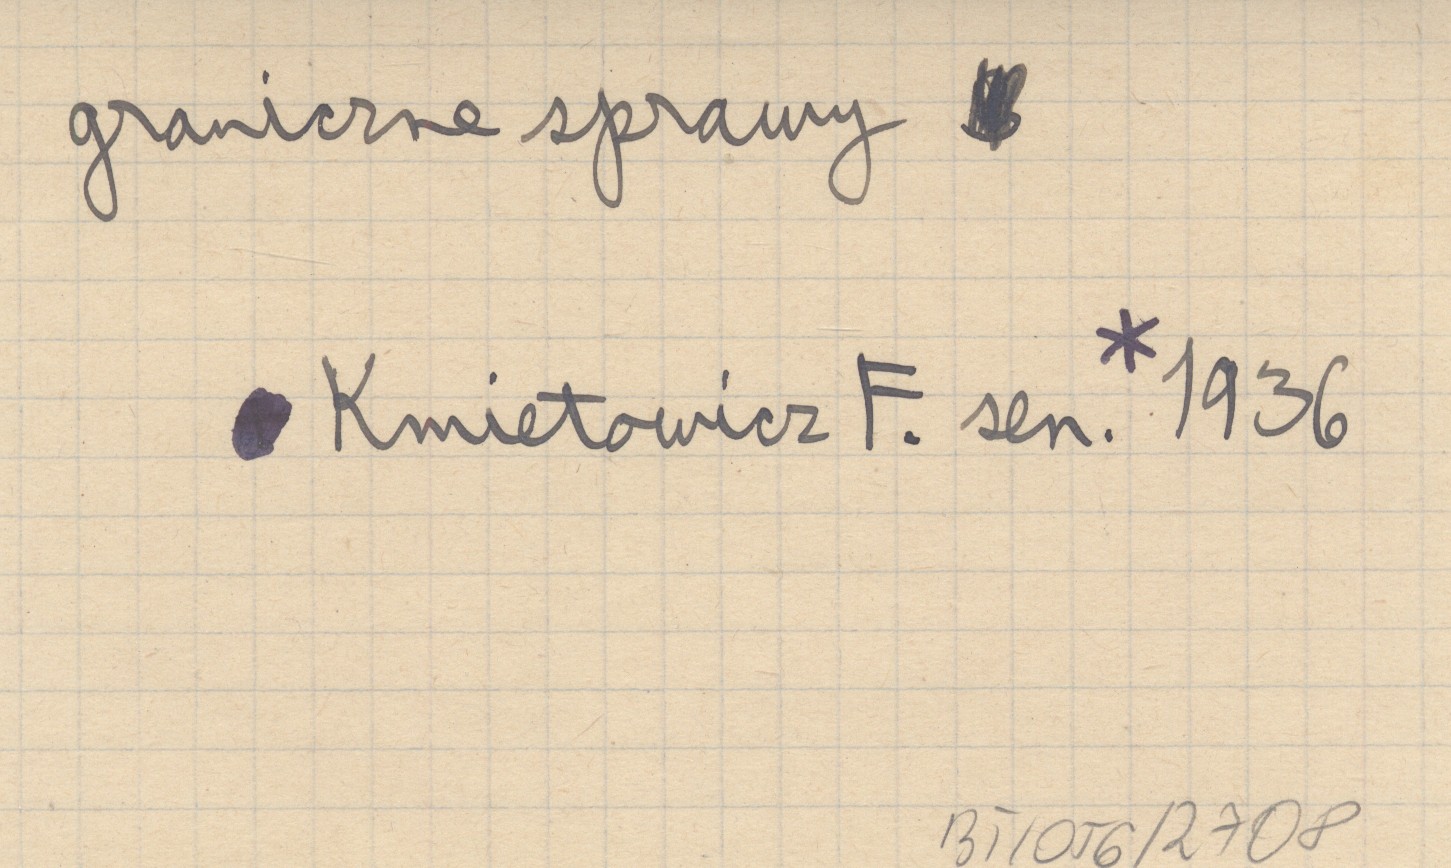 graniczne sprawy
Kmietowicz F. sen. * 1936
BT/056/2708